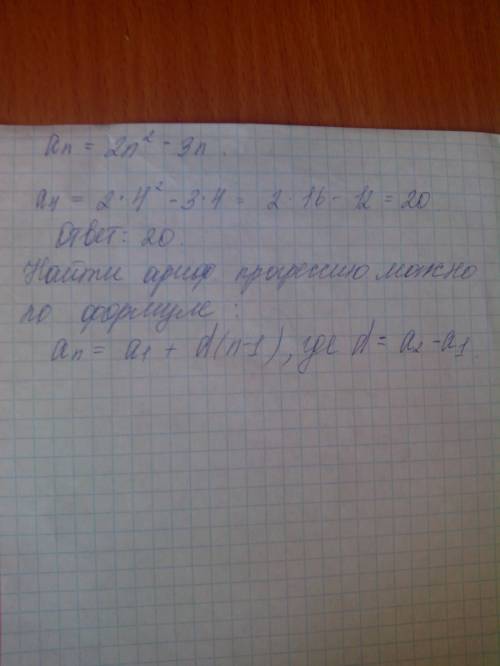 an = 2n² - 3n.
a4 = 2·4² - 3·4 = 2·16 - 12 = 20
Ответ: 20.
Найти ариф прогрессию можно
по формуле:
an = a1 + d(n-1), где d = a2 - a1